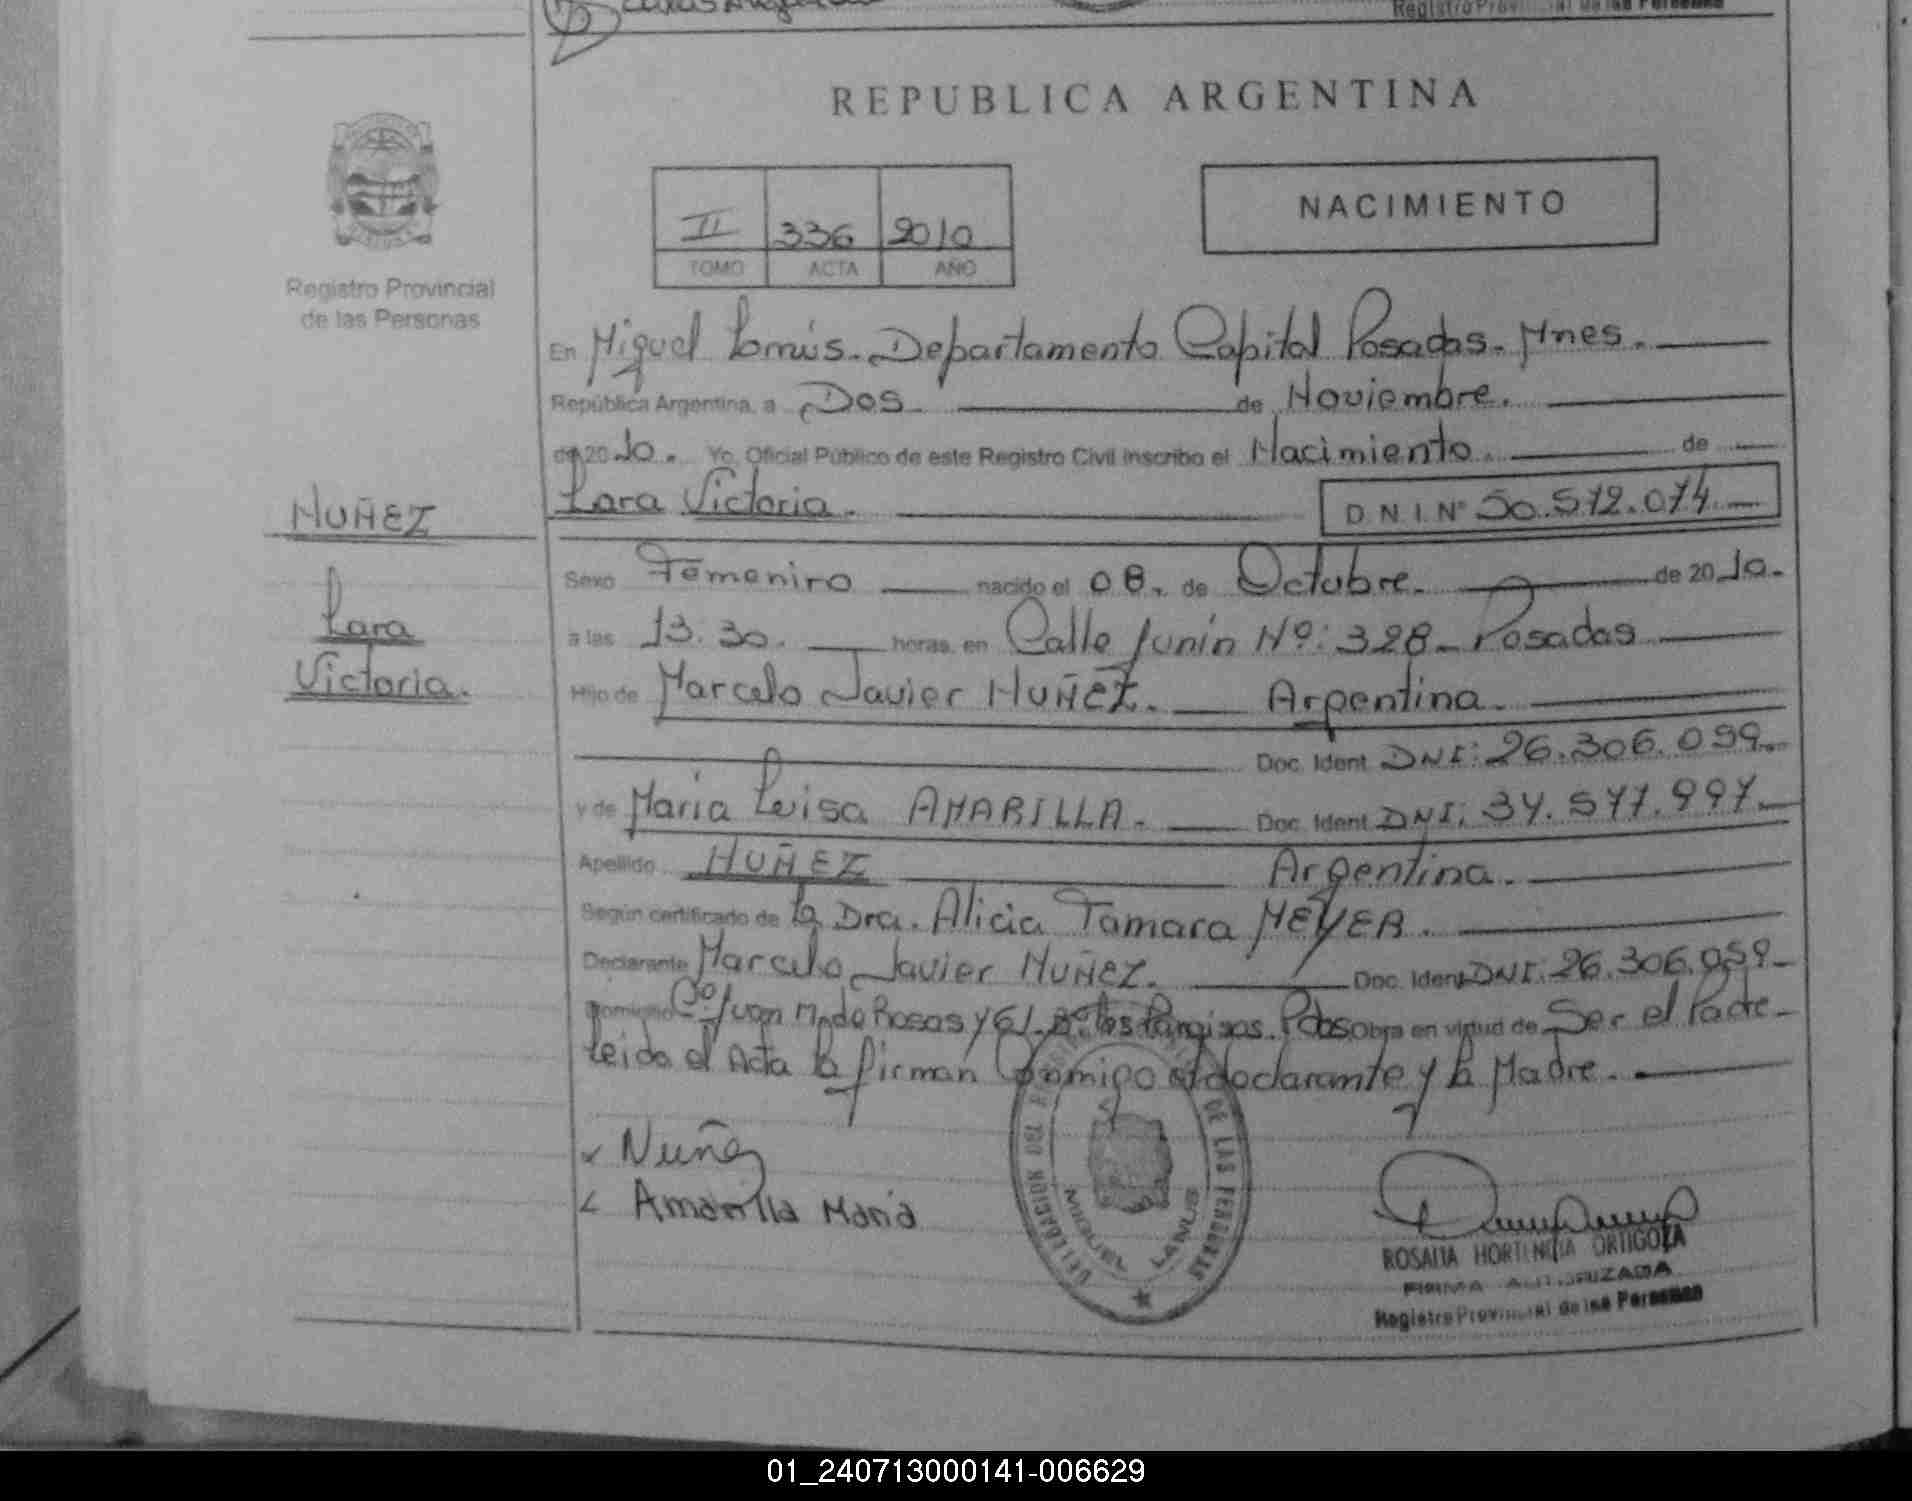 Registro Provincial de las Personas
REPUBLICA ARGENTINA
NACIMIENTO
II 336 2010
TOMO ACTA AÑO
Registro Provincial
de las Personas
En Miguel Lanús. Departamento Capital Posadas. Mnes.
República Argentina, a Dos de Noviembre.
de 2010. Yo, Oficial Público de este Registro Civil inscribo el Nacimiento. de
NUÑEZ
Lara
Victoria.
Lara Victoria. D.N.I. Nº 50.572.074
Sexo Femenino nacido el 08. de Octubre. de 2010.
a las 13.30. horas, en Calle Junín Nº: 328 - Posadas
Hijo de Marcelo Javier NUÑEZ. Argentina.
Doc. Ident. DNI: 26.306.059
y de María Luisa AMARILLA. Doc. Ident. DNI: 34.577.997
Apellido NUÑEZ Argentina.
Según certificado de la Dra. Alicia Tamara MEYER.
Declarante Marcelo Javier NUÑEZ. Doc. Ident. DNI: 26.306.059
Domicilio Juan M. de Rosas y Obra en virtud de Ser el Padre
Leida el Acta la firman conmigo el declarante y la Madre.
Nuñez
Amarilla Maria
DE LAS PERSONAS
DELEGACION
MIGUEL LANUS
ROSALIA HORTENCIA ORTIGOZA
FIRMA AUTORIZADA
Registro Provincial de las Personas
01_240713000141-006629